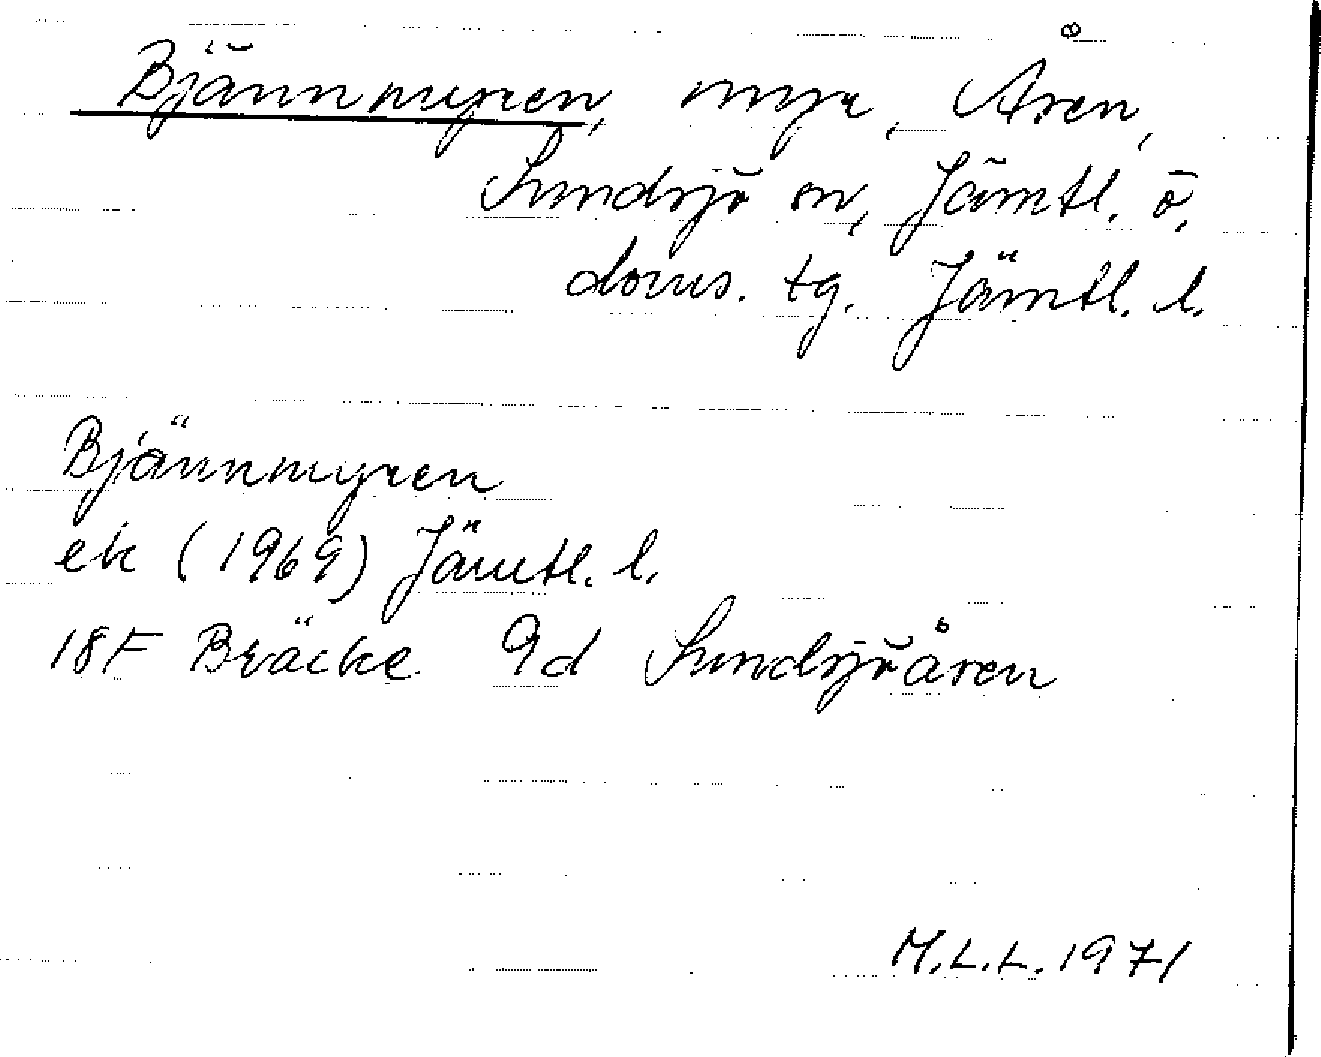 Bjännmyren, myr, Åsen,
Sundsjö sn, Jämtl. ö.
doms. tg. Jämtl. l.
Bjännmyren
ek (1969) Jämtl. l.
18F Bräcke 9d Sundsjöåsen
M.L.L. 1971